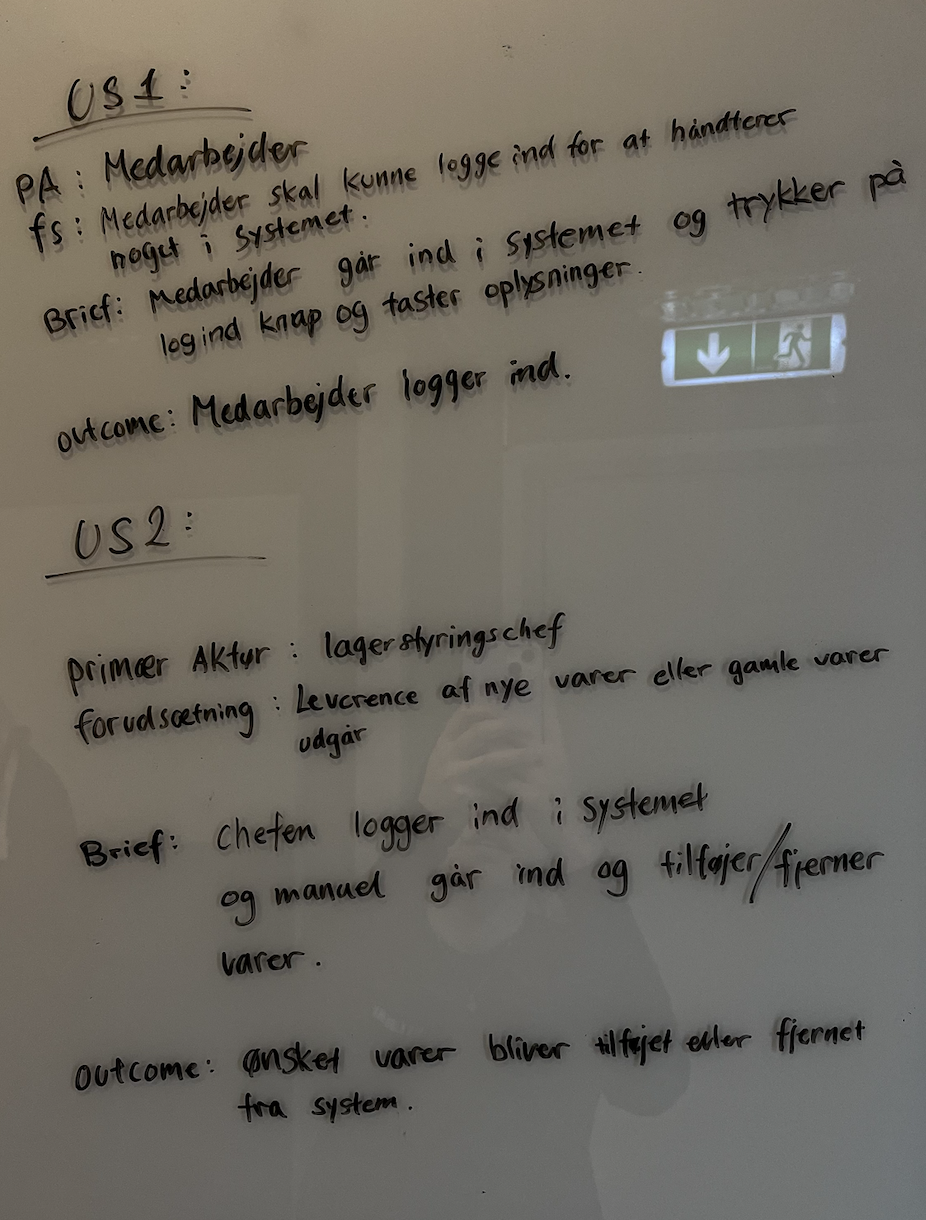 US1:
PA: Medarbejder
fs: Medarbejder skal kunne logge ind for at håndterer
noget i systemet.
Brief: Medarbejder går ind i systemet og trykker på
log ind knap og taster oplysninger.
outcome: Medarbejder logger ind.
US2:
primær Aktør: lagerstyringschef
forudsætning: Leverence af nye varer eller gamle varer
udgår
Brief: Chefen logger ind i systemet
og manuel går ind og tilføjer/fjerner
varer.
outcome: ønsket varer bliver tilføjet eller fjernet
fra system.